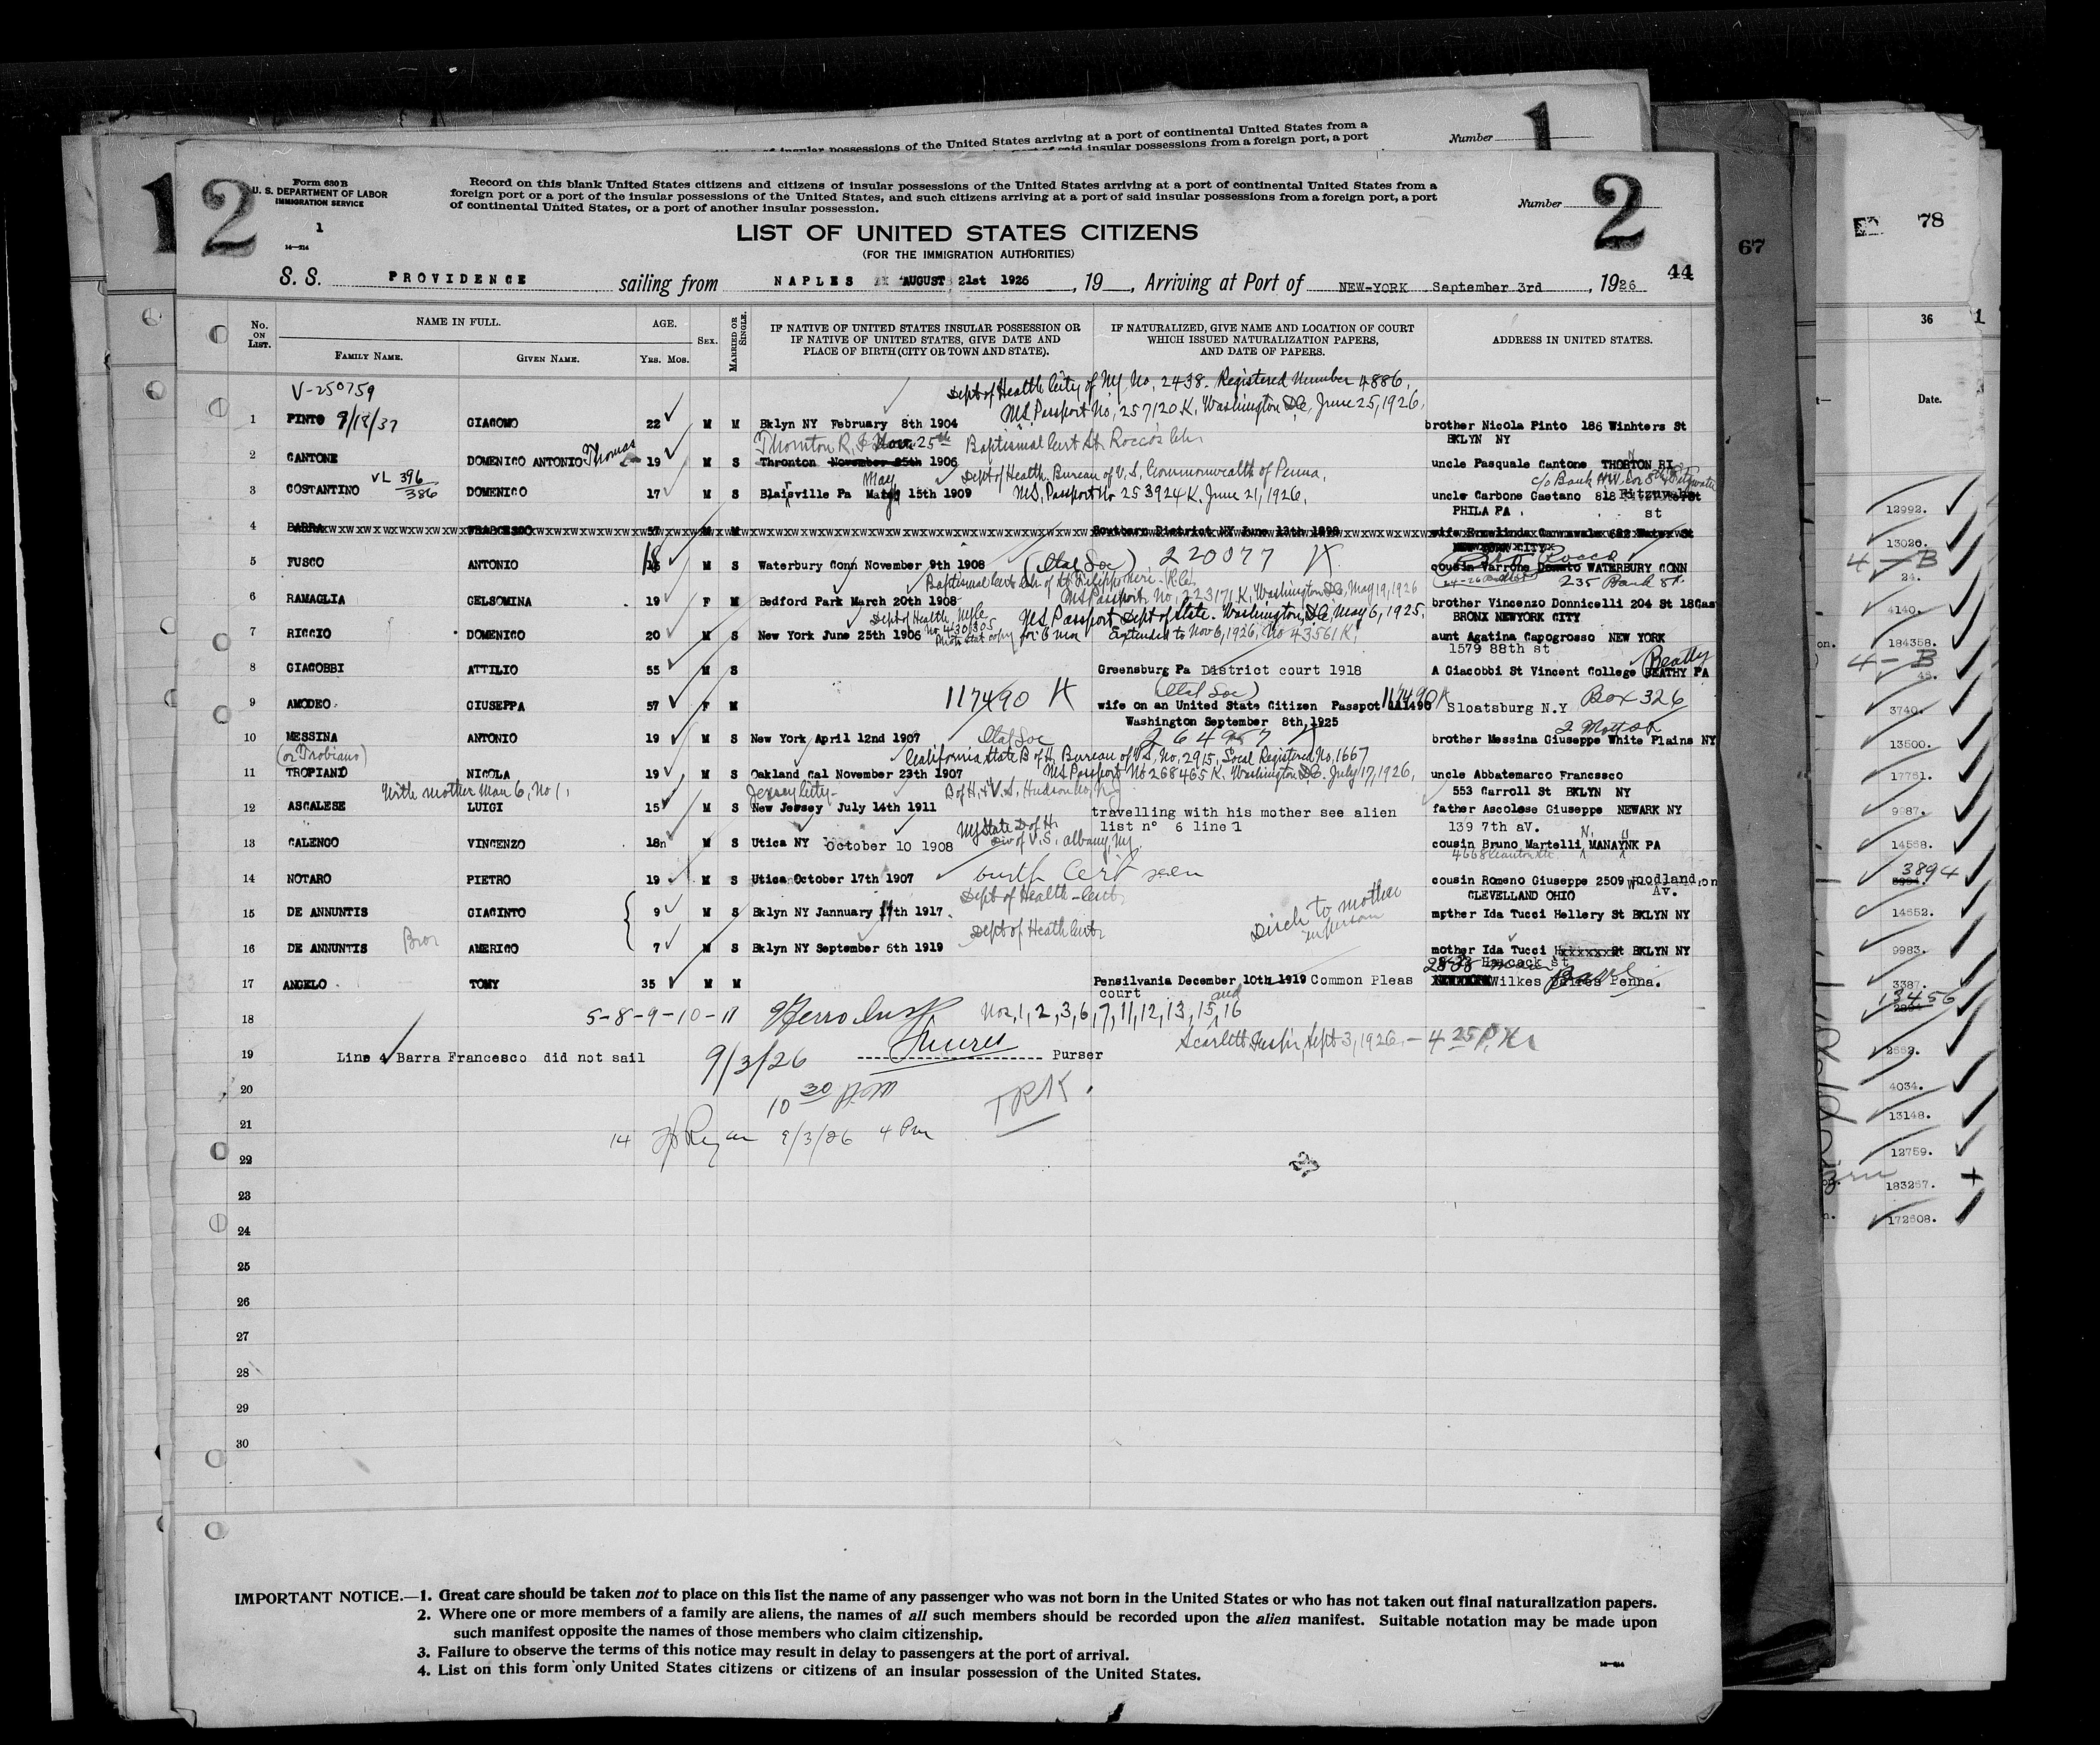 of insular possessions of the United States arriving at a port of continental United States from a
said insular possessions from a foreign port, a port
Number 1
1
2
Form 630 B
U. S. DEPARTMENT OF LABOR
IMMIGRATION SERVICE
1
14—214
Record on this blank United States citizens and citizens of insular possessions of the United States arriving at a port of continental United States from a
foreign port or a port of the insular possessions of the United States, and such citizens arriving at a port of said insular possessions from a foreign port, a port
of continental United States, or a port of another insular possession.
Number 2
LIST OF UNITED STATES CITIZENS
(FOR THE IMMIGRATION AUTHORITIES)
44
S. S. PROVIDENCE sailing from NAPLES AUGUST 21st 1926, 19 , Arriving at Port of NEW-YORK September 3rd, 1926
No. ON LIST.
NAME IN FULL.
FAMILY NAME. GIVEN NAME.
AGE.
YRS. MOS.
SEX.
MARRIED OR SINGLE.
IF NATIVE OF UNITED STATES INSULAR POSSESSION OR
IF NATIVE OF UNITED STATES, GIVE DATE AND
PLACE OF BIRTH (CITY OR TOWN AND STATE).
IF NATURALIZED, GIVE NAME AND LOCATION OF COURT
WHICH ISSUED NATURALIZATION PAPERS,
AND DATE OF PAPERS.
ADDRESS IN UNITED STATES.
V-250759
Dept of Health City of NY No. 2438. Registered Number 4886.
US Passport No. 257120 K. Washington DC. June 25, 1926.
1 PINTO 9/18/37 GIACOMO 22 M M Bklyn NY February 8th 1904 brother Nicola Pinto 186 Winhters St
BKLYN NY
Thornton R.I. Nov. 25th Baptismal Cert St. Rocco's Ch.
2 CANTONE DOMENICO ANTONIO Thomas 19 M S Thronton November 25th 1906 uncle Pasquale Cantone THORTON RI
VL 396/386
May Dept of Health, Bureau of V.S. Commonwealth of Penna.
3 COSTANTINO DOMENICO 17 M S Blairsville Pa 15th 1909 US. Passport No 253924 K. June 21, 1926. uncle Carbone Gaetano 818
PHILA PA. st
4 BARRA FRANCESCO 57 M M Southern District NY June 13th 1898
NEW YORK CITY
5 FUSCO ANTONIO 18 M S Waterbury Conn November 9th 1908 (Ital Soc) 220077 K cousin Varrone Donato WATERBURY CONN
Rocco
235 Bank St.
Baptismal Cert Ch. of St Filippo Neri - R.C.
US Passport No. 223171 K, Washington DC, May 19, 1926
6 RAMAGLIA GELSOMINA 19 F M Bedford Park March 20th 1908 brother Vincenzo Donnicelli 204 St 18Gas
BRONX NEWYORK CITY
US Passport Dept of State. Washington, DC, May 6, 1925.
7 RICCIO DOMENICO 20 M S New York June 25th 1906 for 6 mon Extended to Nov 6, 1926, No 43561 K. aunt Agatina Capogrosso NEW YORK
1579 88th st
8 GIACOBBI ATTILIO 55 M S Greensburg Pa District court 1918 A Giacobbi St Vincent College BEATHY PA
Beatty
117490 K (Ital Soc) 117490 K
9 AMODEO GIUSEPPA 57 F M wife on an United State Citizen Passpot Sloatsburg N.Y Box 326
Washington September 8th, 1925
10 MESSINA ANTONIO 19 M S New York April 12nd 1907 Ital Soc brother Messina Giuseppe White Plains NY
(or Trobiano)
California State B of H. Bureau of V.S. No. 2915. Local Registered No. 1667
11 TROPIANO NICOLA 19 M S Oakland Cal November 23th 1907 US Passport No 268465 K. Washington DC. July 17, 1926. uncle Abbatemarco Francesco
553 Carroll St BKLYN NY
With mother Man 6, No 1,
Jersey City
12 ASCALESE LUIGI 15 M S New Jersey July 14th 1911 travelling with his mother see alien
list n° 6 line 1
father Ascolese Giuseppe NEWARK NY
139 7th aV.
NY State D of H.
Div of V.S. Albany, NY
13 CALENCO VINCENZO 18 M S Utica NY October 10 1908 cousin Bruno Martelli MANAYNK PA
14 NOTARO PIETRO 19 M S Utica October 17th 1907 birth Cert seen cousin Romeno Giuseppe 2509 Woodland
CLEVELLAND OHIO Av.
Dept of Health - Cert
15 DE ANNUNTIS GIACINTO 9 M S Bklyn NY Jannuary 17th 1917. mpther Ida Tucci Hellery St BKLYN NY
Disch to mother
in person
Dept of Heath Cert
16 DE ANNUNTIS Bror AMERICO 7 M S Bklyn NY September 6th 1919 mother Ida Tucci St BKLYN NY
Hancock st
17 ANGELO TONY 35 M M Pensilvania December 10th 1919 Common Pleas
court
Wilkes Barre Penna.
18 5-8-9-10-17 Nos, 1, 2, 3, 6, 7, 11, 12, 13, 15, and 16
Scarlett Inspr, Sept 3, 1926, - 4 25 P.M.
19 Line 4 Barra Francesco did not sail 9/3/26 Purser
20 10 30 AM
TRK
21 14 Ryan 9/3/26 4 Pm
22
23
24
25
26
27
28
29
30
IMPORTANT NOTICE.—1. Great care should be taken not to place on this list the name of any passenger who was not born in the United States or who has not taken out final naturalization papers.
2. Where one or more members of a family are aliens, the names of all such members should be recorded upon the alien manifest. Suitable notation may be made upon
such manifest opposite the names of those members who claim citizenship.
3. Failure to observe the terms of this notice may result in delay to passengers at the port of arrival.
4. List on this form only United States citizens or citizens of an insular possession of the United States.
67
78
36 1
Date.
12992.
13020.
4 - B
24.
4140.
184358.
4 - B
3740.
13500.
17751.
9987.
14568.
3894
14552.
9983.
3387.
13456
2562.
4034.
13148.
12759.
183267.
172608.